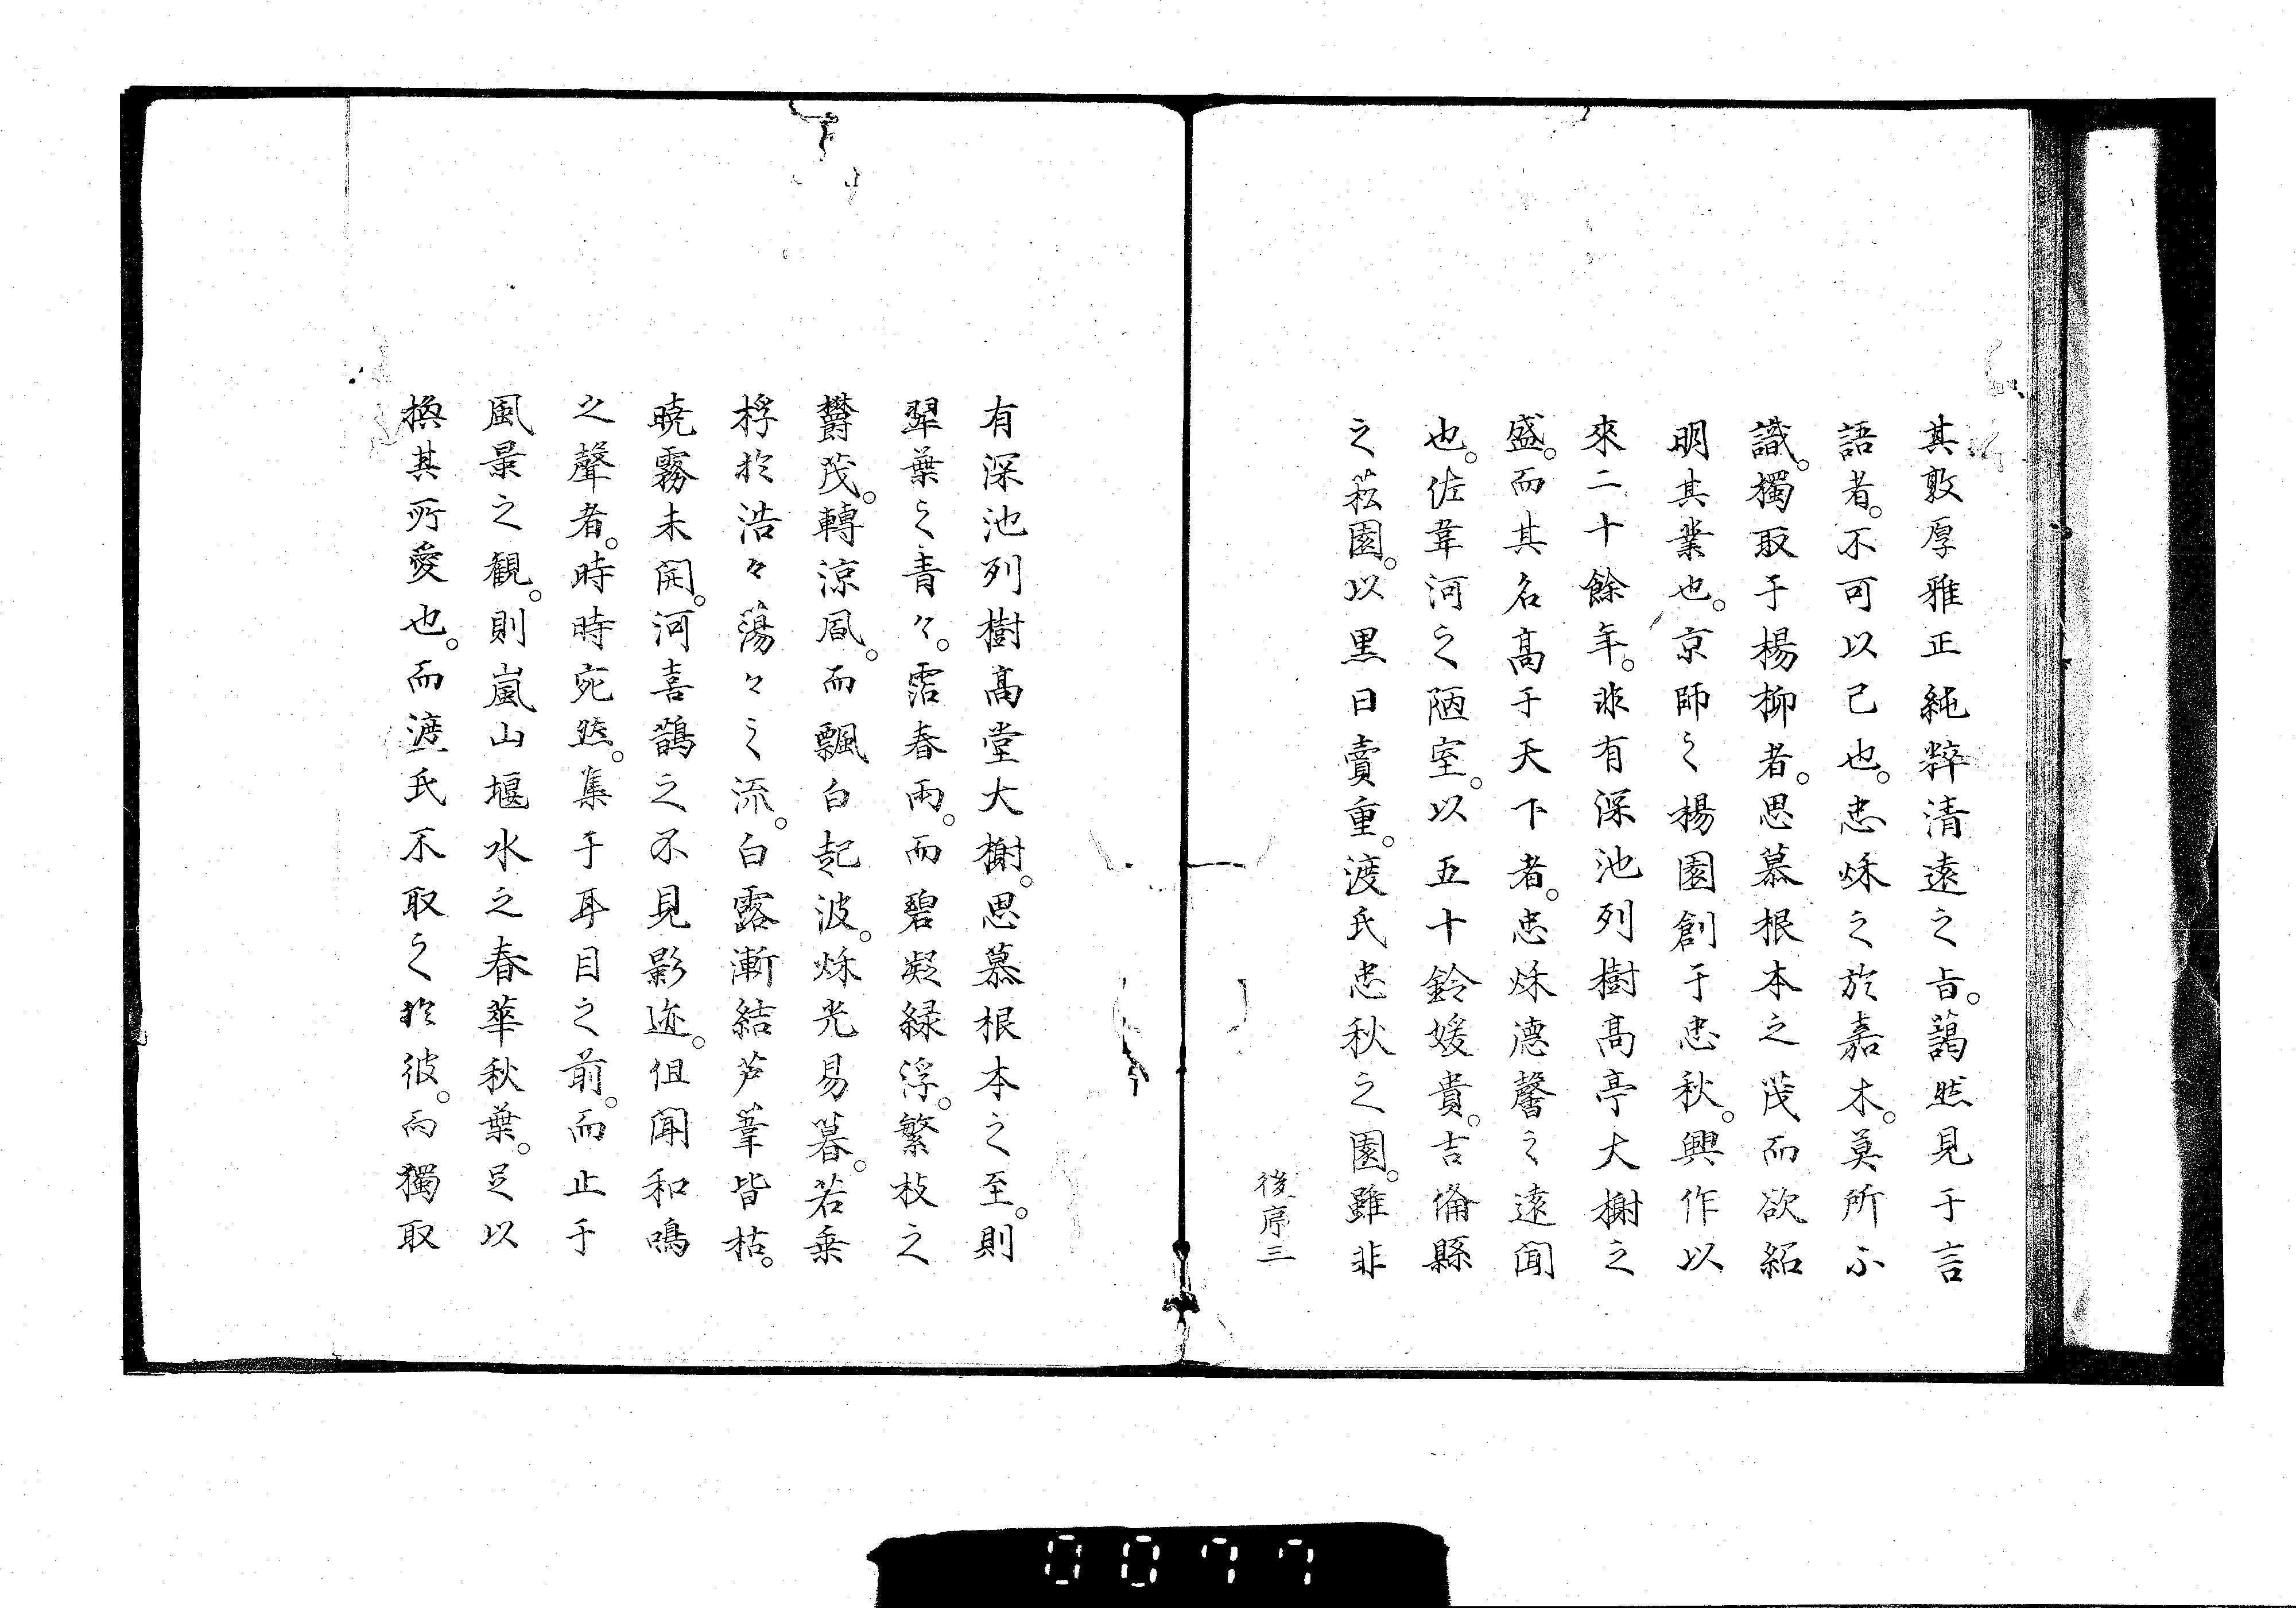 其敦厚雅正純粹清遠之旨。藹然見于言
語者。不可以已也。忠烁之於嘉木。莫所不
識。獨取于楊柳者。思慕根本之茂而欲紹
明其業也。京師之楊園創于忠秋。興作以
來二十餘年。非有深池列樹高亭大榭之
盛。而其名高于天下者。忠烁德馨之遠聞
也。佐葦河之陋室。以五十鈴媛貴。吉備縣
之菘園。以黑日賣重。渡氏忠秋之園。雖非
後序三
有深池列樹高堂大榭。思慕根本之至。則
翠葉之青々。霑春雨。而碧凝緑浮。繁枝之
欝茂。轉涼風。而飄白起波。烁光易暮。若乗
桴於浩々蕩々之流。白露漸結芦葦皆枯。
曉霧未開。河喜鵲之不見影迹。但聞和鳴
之聲者。時時宛然。集于耳目之前。而止于
風景之観。則嵐山堰水之春華秋葉。足以
換其所愛也。而渡氏不取之於彼。而獨取
0077